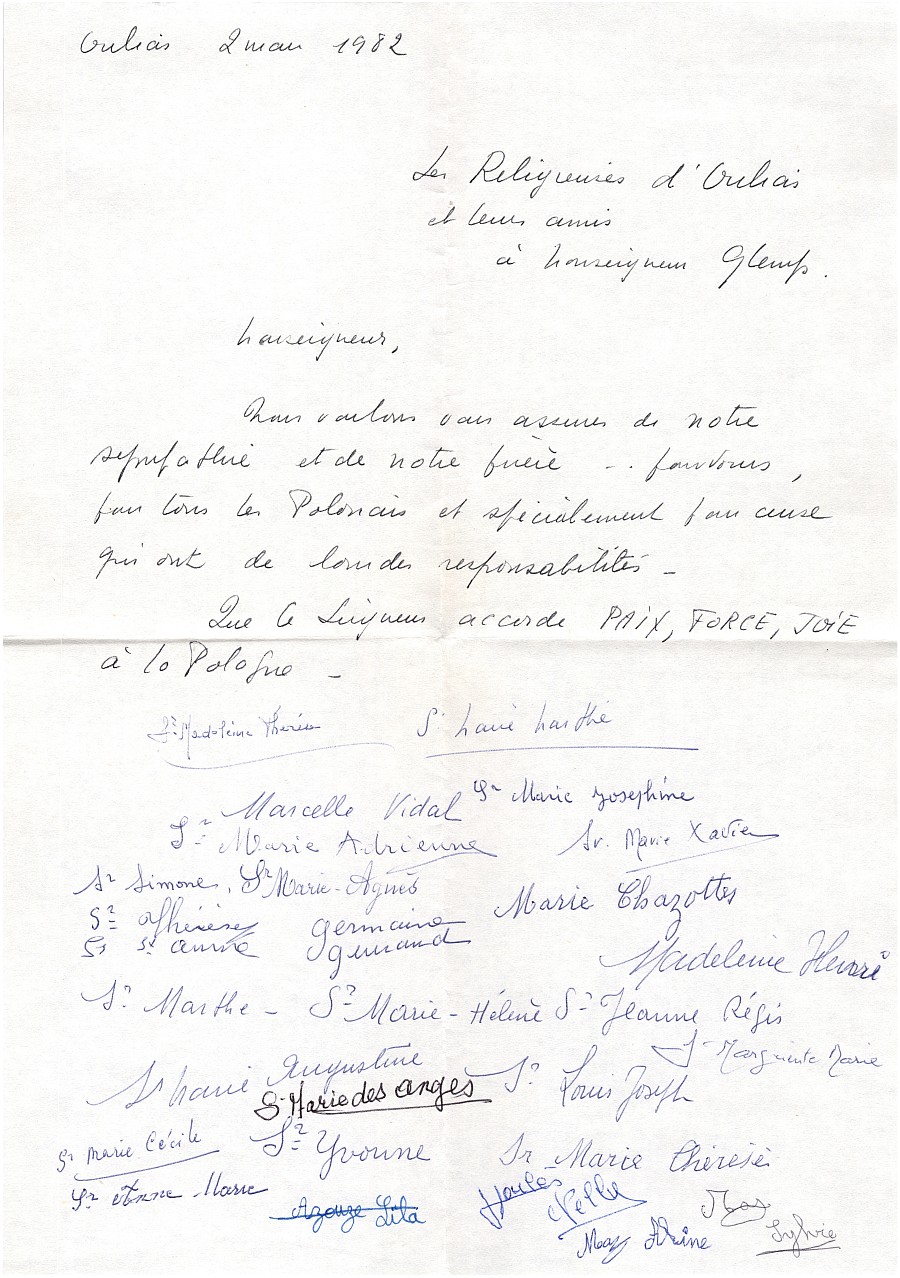 2 mars 1982
Les Religieuses d'
et leurs amis
à Monseigneur Glemp.
Monseigneur,
Nous voulons vous assurer de notre
sympathie et de notre prière -. pour vous,
pour tous les Polonais et spécialement pour ceux
qui ont de lourdes responsabilités -
Que le Seigneur accorde PAIX, FORCE, JOIE
à la Pologne -
Sr Madeleine Thérèse Sr Marie Marthe
Marcelle Vidal Sr Marie Josephine
Sr Marie Adrienne Sr. Marie Xavier
Sr Simone, Sr Marie-Agnès
Marie Chazottes
Sr Thérèse germaine
Sr St anne
Madeleine
Sr Marthe - Sr Marie-Hélène Sr Jeanne Régis
Sr Marguerite Marie
Sr Marie Augustine Sr Louis Joseph
Sr Marie des anges
Sr marie Cécile Sr Yvonne
Sr Marie Thérèse
Sr Anne Marie
Azouze Lila Nelly
Sylvie